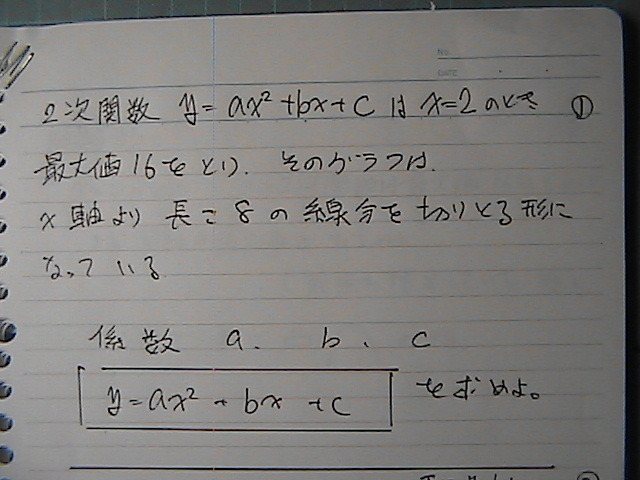 No.
DATE
2次関数 y=ax²+bx+c は x=2 のとき ①
最大値16をとり、そのグラフは、
x軸より 長さ8の線分を切りとる形に
なっている
係数 a、b、c
y=ax²+bx+c を求めよ。